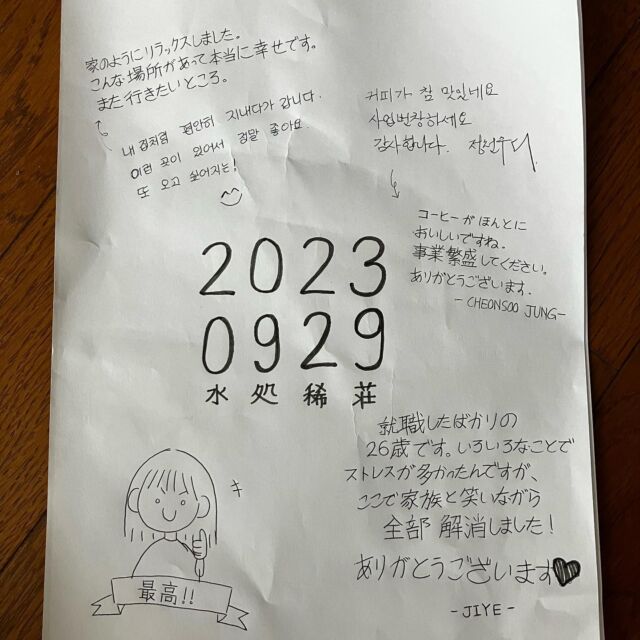 家のようにリラックスしました。
こんな場所があって本当に幸せです。
また行きたいところ。
내 집처럼 편안히 지내다가 갑니다.
이런 곳이 있어서 정말 좋아요.
또 오고 싶어지는!
커피가 참 맛있네요
사업번창하세요
감사합니다.
コーヒーがほんとに
おいしいですね.
事業繁盛してください。
ありがとうございます.
- CHEONSOO JUNG-
2023
0929
水処稀荘
就職したばかりの
26歳です。いろいろなことで
ストレスが多かったんですが、
ここで家族と笑いながら
全部 解消しました!
ありがとうございます♥
- JIYE -
最高!!